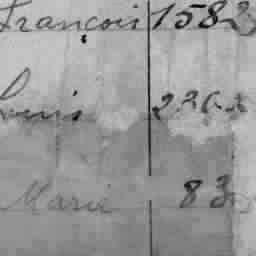 François 1582
Louis 236
Marie 83